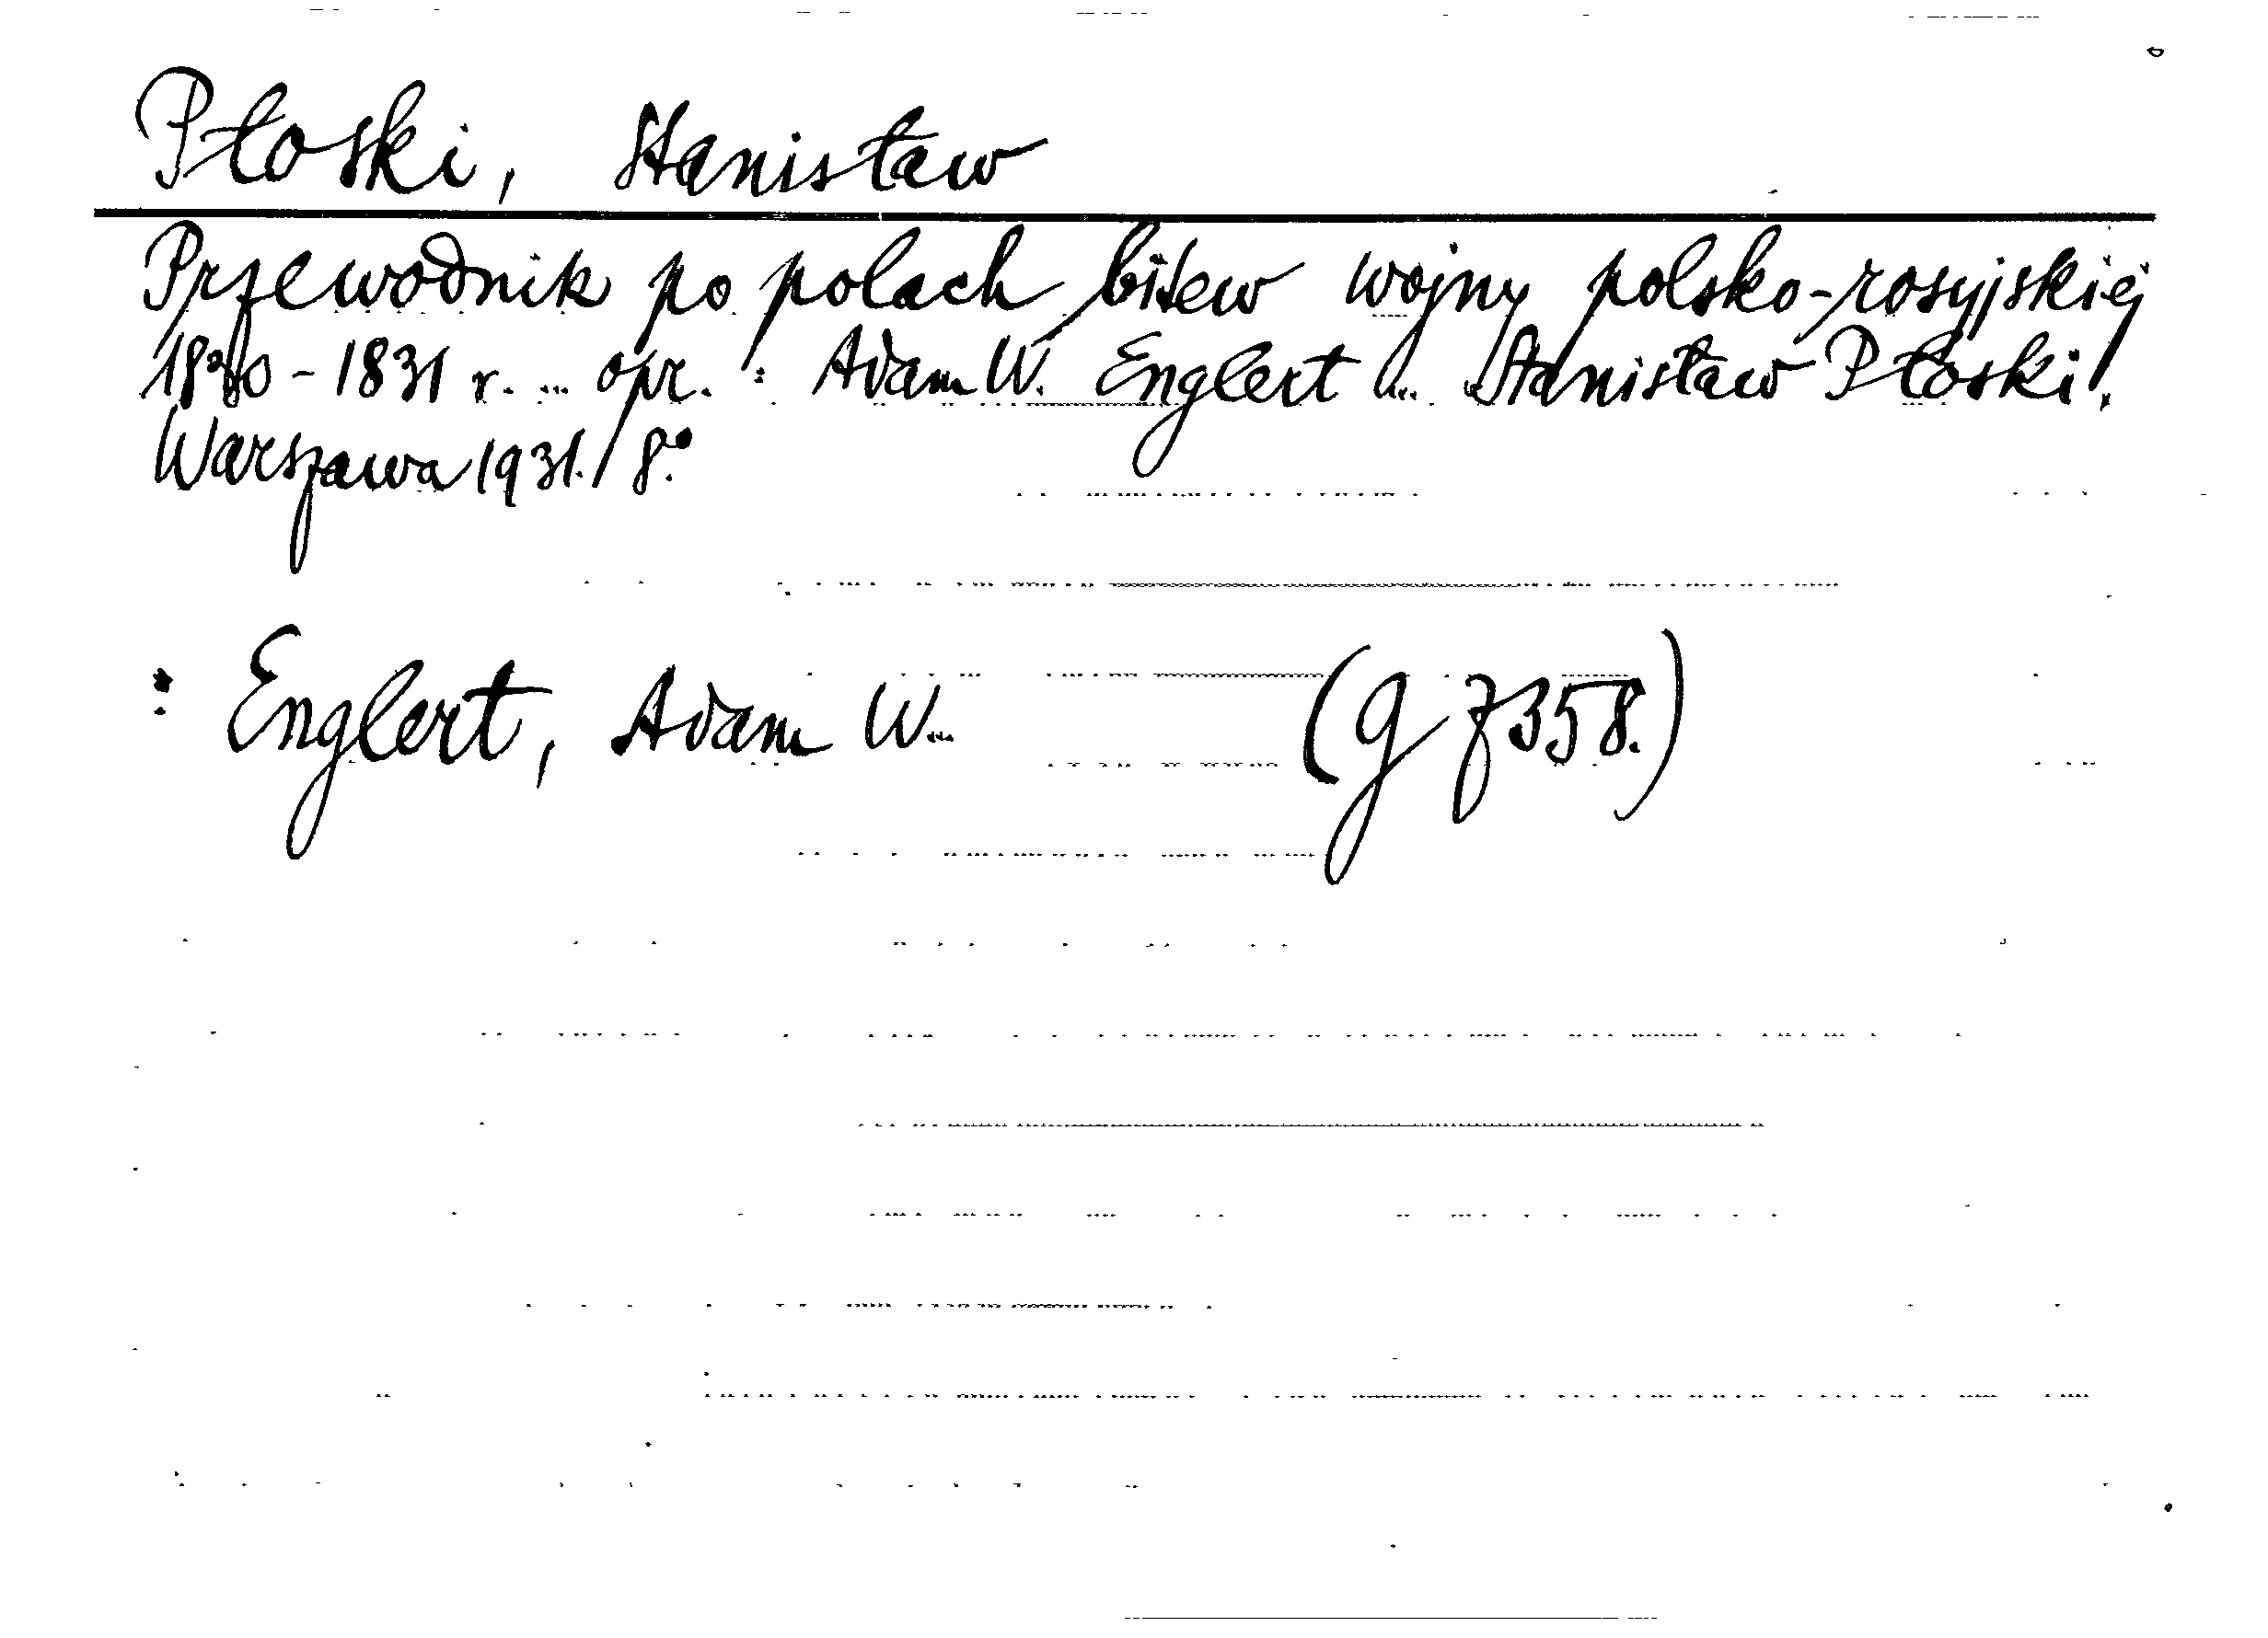 Płoski, Stanisław
Przewodnik po polach bitew wojny polsko-rosyjskiej
1830-1831 r. ... opr. : Adam W. Englert ... Stanisław Płoski.
Warszawa 1931. 8.°
: Englert, Adam W... (g 7358.)